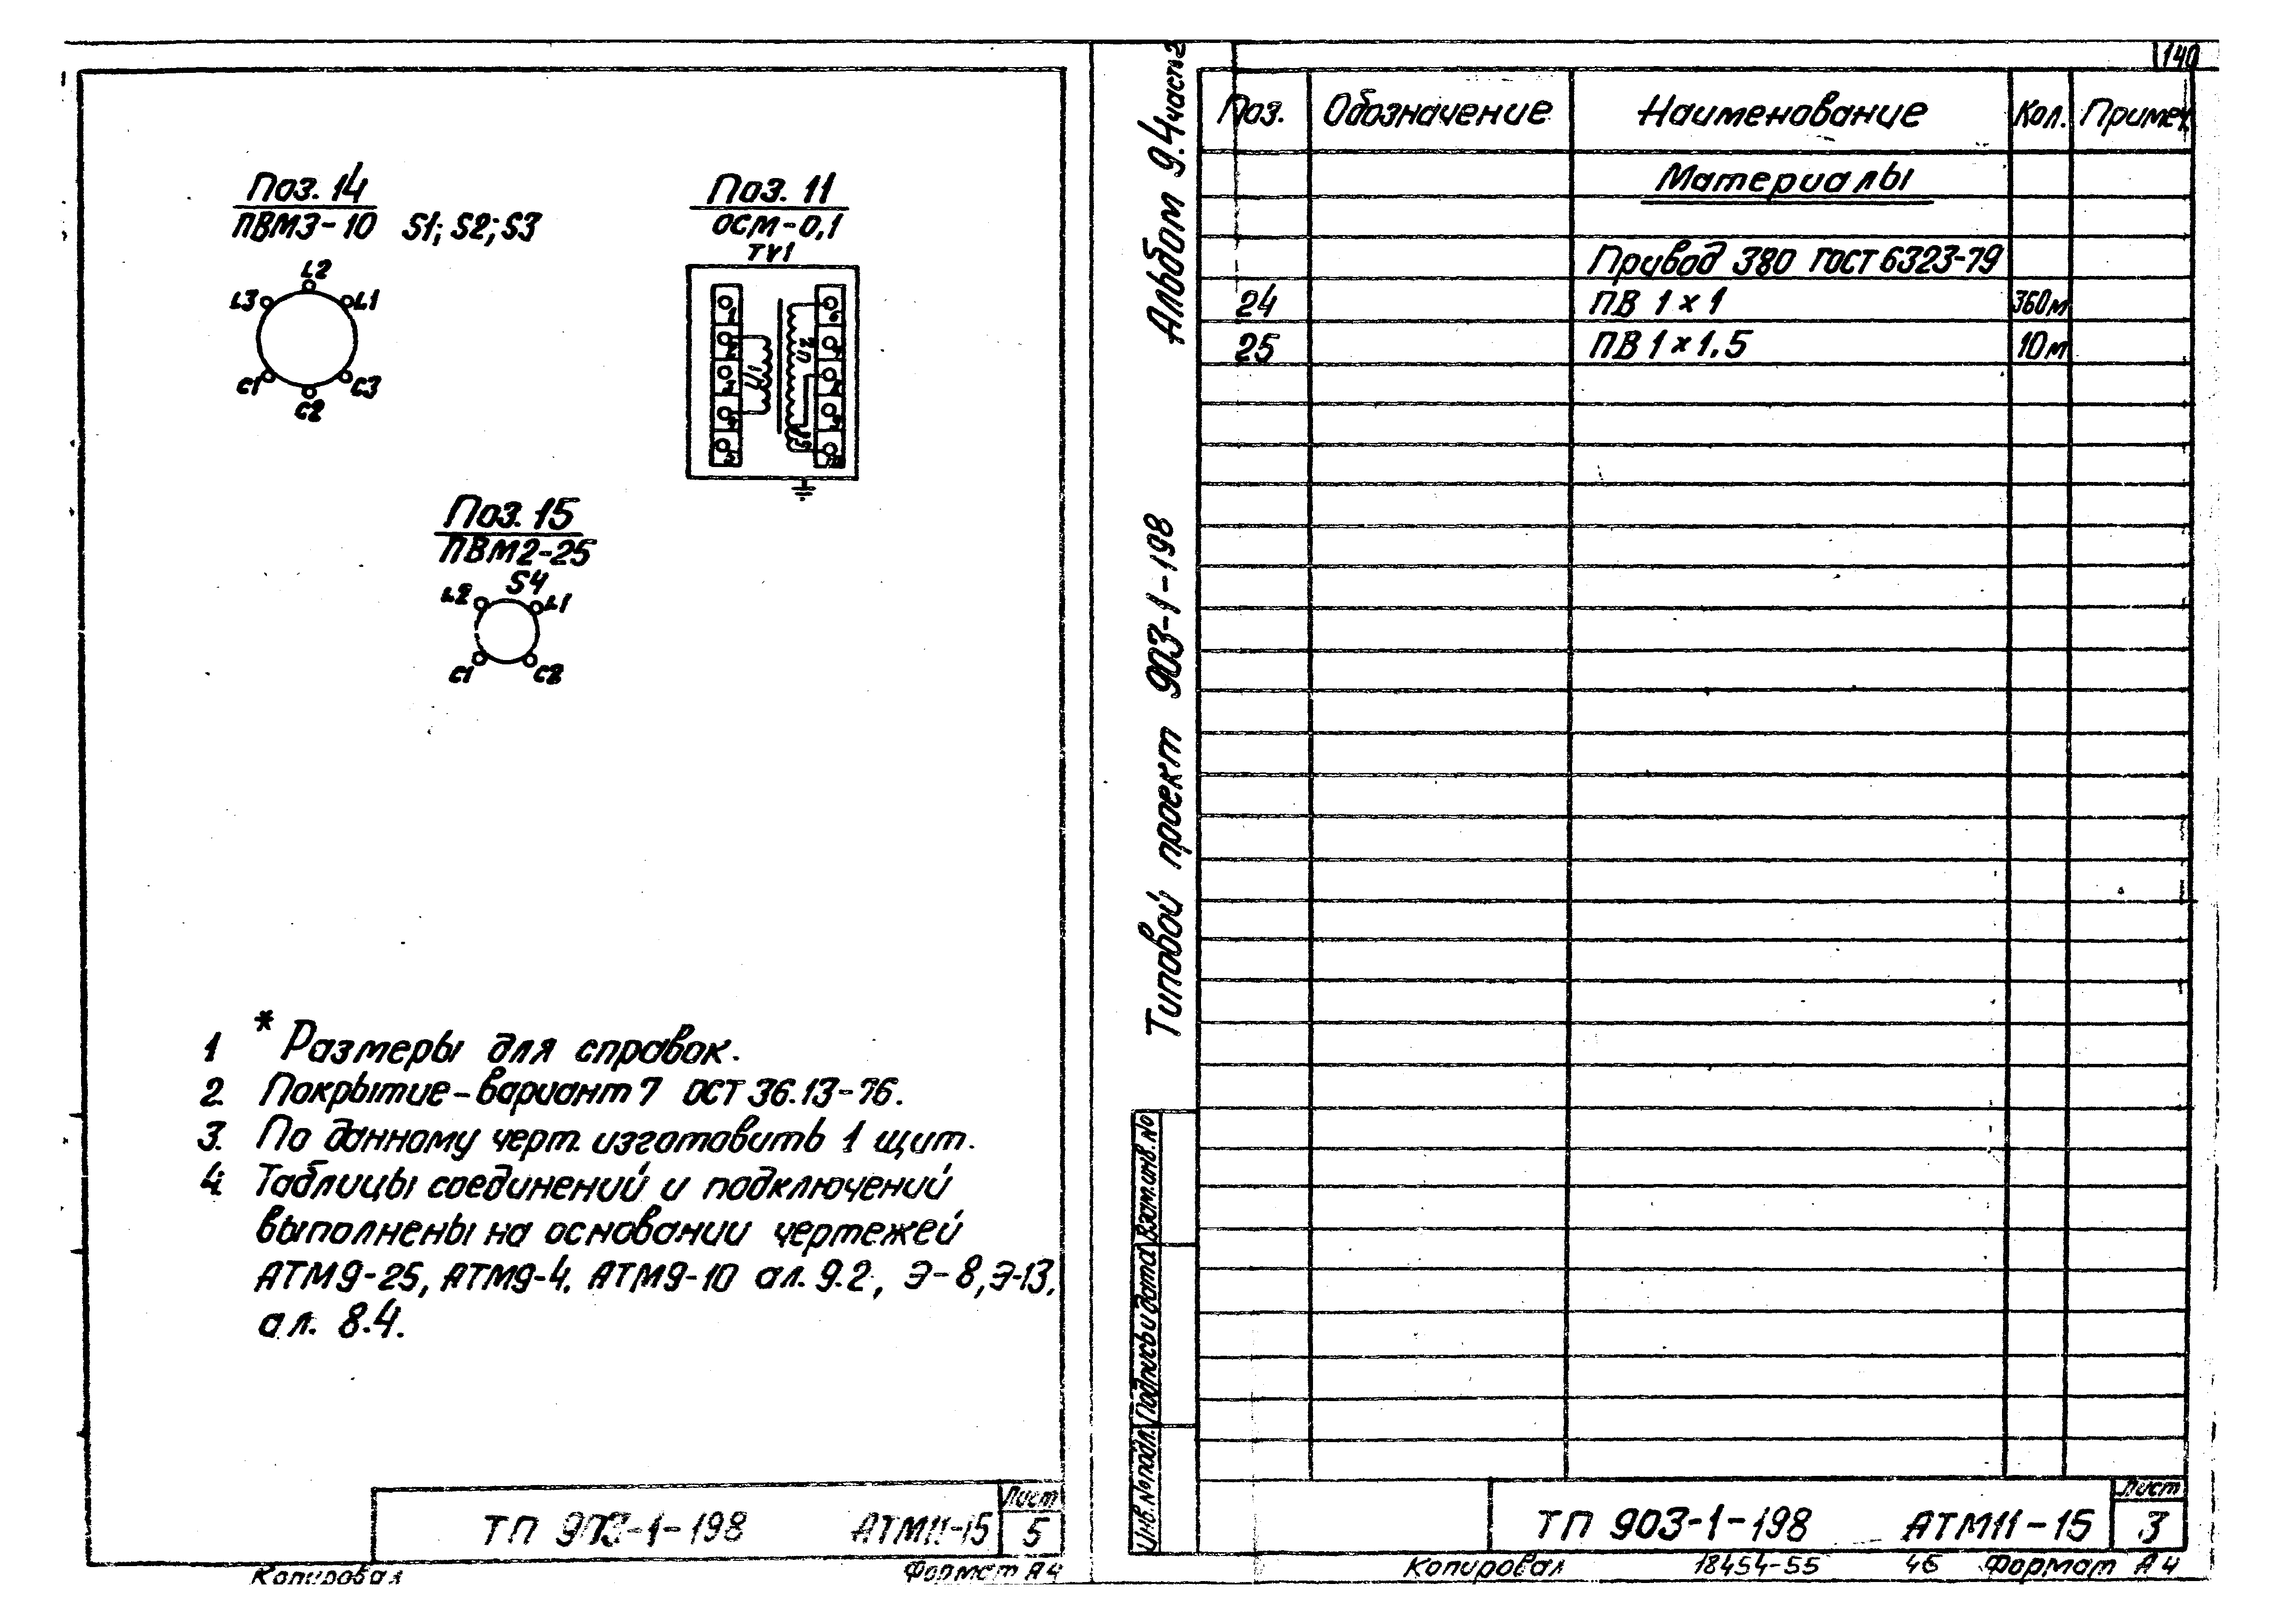 Поз. 14
ПВМ3-10 S1; S2; S3
L2
L3 L1
C1 C3
C2
Поз. 11
ОСМ-0,1
TV1
Поз. 15
ПВМ2-25
S4
L2 L1
C1 C2
1 * Размеры для справок.
2. Покрытие-вариант 7 ОСТ 36.13-76.
3. По данному черт. изготовить 1 щит.
4. Таблицы соединений и подключений
выполнены на основании чертежей
АТМ9-25, АТМ9-4, АТМ9-10 ал. 9.2, Э-8, Э-13.
ал. 8.4.
ТП 903-1-198 АТМ11-15
Лист
5
Копировал Формат А4
Альбом 9.4 часть 2
Типовой проект 903-1-198
140
Поз. Обозначение Наименование Кол. Примеч
Материалы
Привод 380 ГОСТ 6323-79
24 ПВ 1×1 360м
25 ПВ 1×1.5 10м
Взам.инв.№
Подпись и дата
Инв.№ подл.
ТП 903-1-198 АТМ11-15
Лист
3
Копировал 18454-55 46 Формат А4